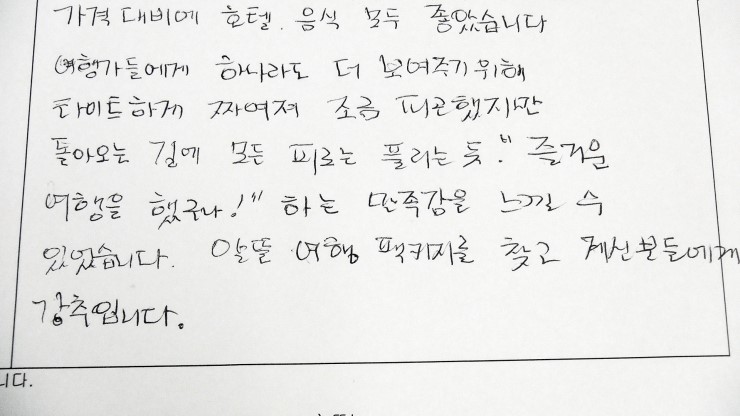 가격 대비에 호텔. 음식 모두 좋았습니다
여행가들에게 하나라도 더 보여주기위해
타이트하게 짜여져 조금 피곤했지만
돌아오는 길에 모든 피로는 풀리는 듯. "즐거운
여행을 했구나!" 하는 만족감을 느낄 수
있었습니다. 알뜰 여행 팩키지를 찾고 계신분들에게
강추입니다.
니다.